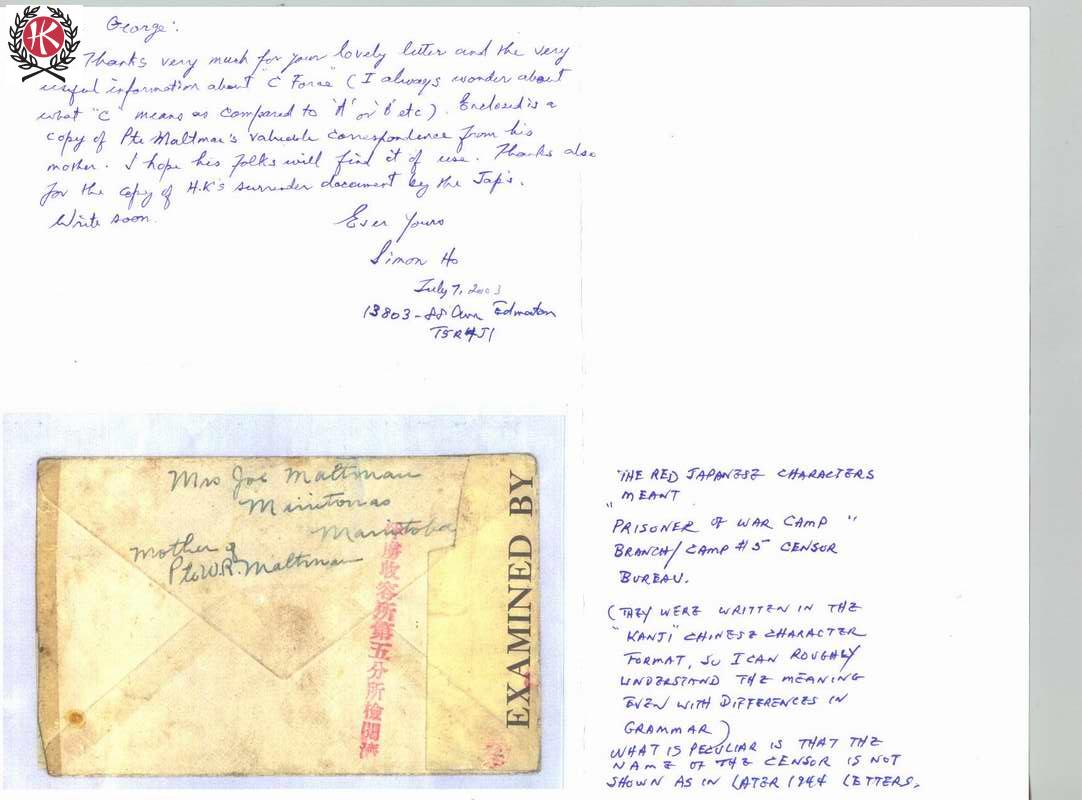 HK
George:
Thanks very much for your lovely letter and the very
useful information about "C Force" (I always wonder about
what "C" means as compared to 'A' or 'B' etc). Enclosed is a
copy of Pte Maltman's valuable correspondence from his
mother. I hope his folks will find it of use. Thanks also
for the copy of H.K's surrender document by the Jap's.
Write soon.
Ever Yours
Simon Ho
July 7, 2003
13803-88 Ave Edmonton
T5R4J1
Mrs Joe Maltman
Minitonas
Manitoba
Mother of
Pte W.R. Maltman
虜收容所第五分所檢閲濟
EXAMINED BY
"THE RED JAPANESE CHARACTERS
MEANT
"PRISONER OF WAR CAMP"
BRANCH/CAMP #5 CENSOR
BUREAU.
(THEY WERE WRITTEN IN THE
"KANJI" CHINESE CHARACTER
FORMAT, SO I CAN ROUGHLY
UNDERSTAND THE MEANING
EVEN WITH DIFFERENCES IN
GRAMMAR)
WHAT IS PECULIAR IS THAT THE
NAME OF THE CENSOR IS NOT
SHOWN AS IN LATER 1944 LETTERS.